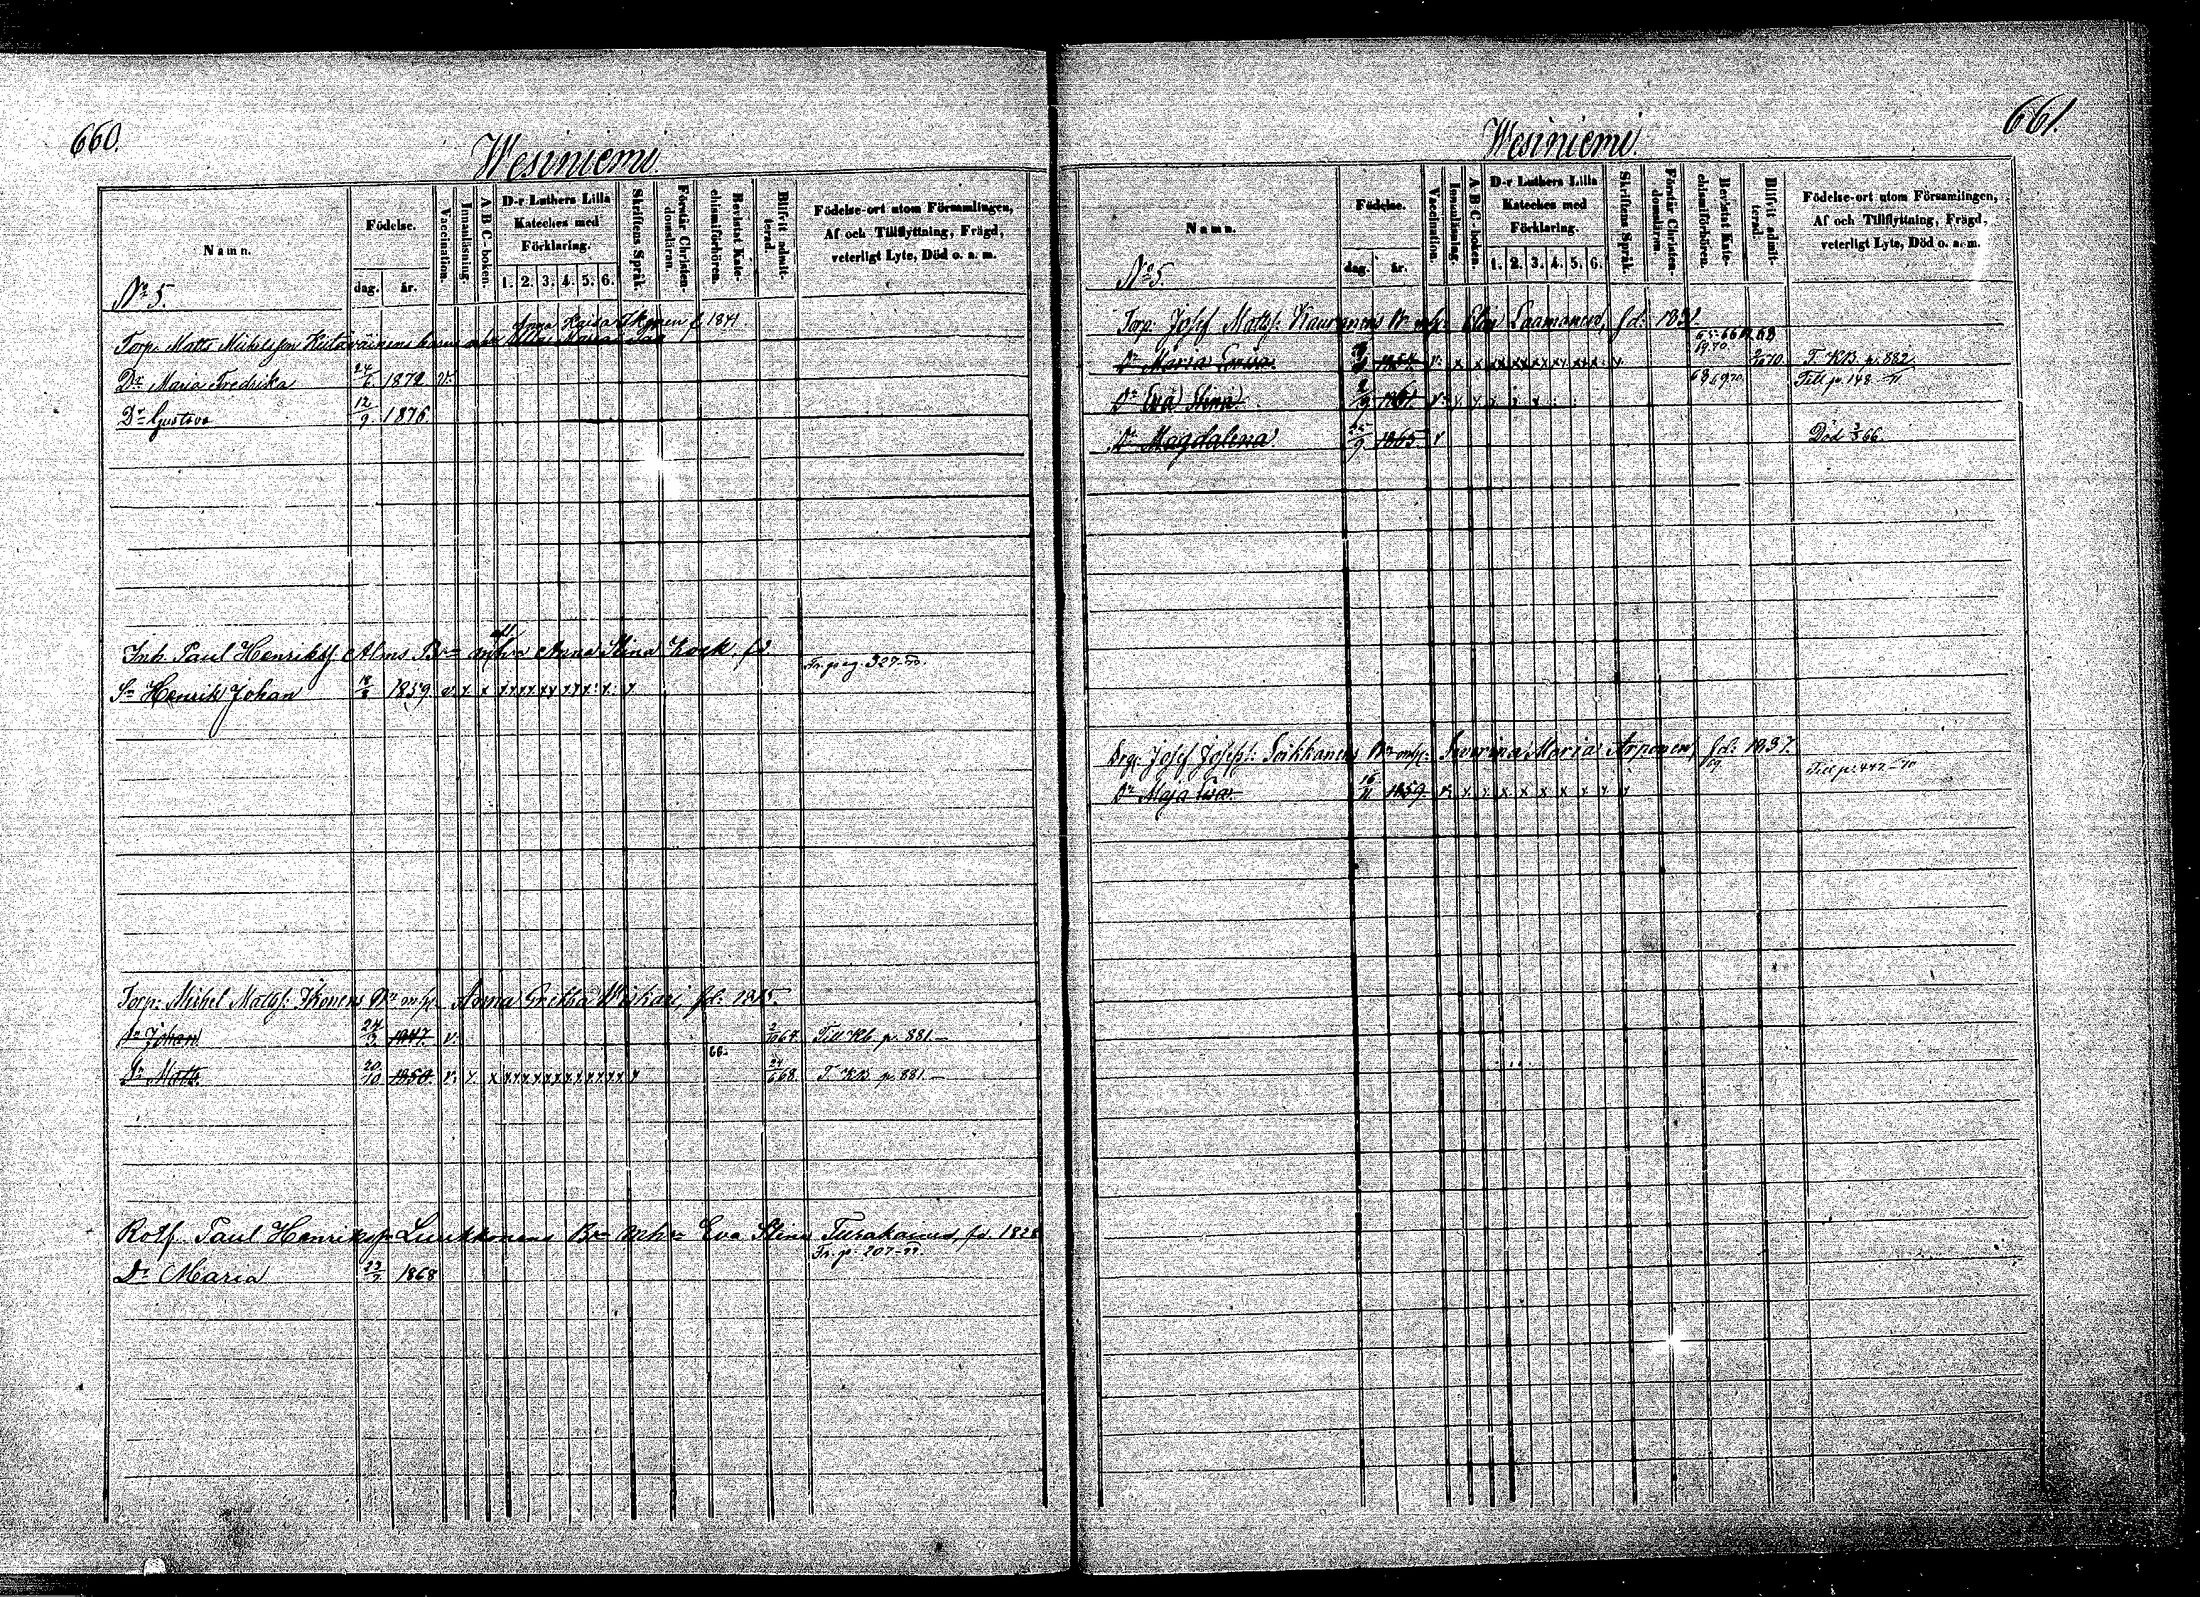 660.
Wesiniemi.
Namn.
Födelse.
dag. år.
Vaccination.
Innanläsning.
A B C-boken.
D-r Luthers Lilla Kateches med Förklaring.
1. 2. 3. 4. 5. 6.
Skriftens Språk.
Förstår Christendomsläran.
Bevistat Katechismiförhören.
Blifvit admitterad.
Födelse-ort utom Församlingen,
Af och Tillflyttning, Frägd,
veterligt Lyte, Död o. a. m.
No 5.
Anna Kaisa Ikonen f. 1841
Torp. Matts Michelsson
Dr Maria Fredrika 24/6 1872 v.
Dr Gustava 12/9 1876.
Inh. Paul Henrikss. Alms Bn Anna Stina fd
Fr. pag. 327-70.
Sn Henrik Johan 18/8 1859. v. x x x x x x x x x x
Torp. Mikel Matss: Ikonens Bn m h. Anna fd: 1815
Sn Johan 24/3 1847. v. 2/10 64 Till Kb p. 881.-
66.
Sn Matts 20/10 1850. v. x x x x x x x x x x x 24/6 68. T. KB p. 881.-
Rotf. Paul Henrikss. Luukkonens Bn m h Eva Stina Turakainen, fd. 1828
Fr. p. 207-77.
Dr Maria 23/7 1868
661.
Wesiniemi.
Namn.
Födelse.
dag. år.
Vaccination.
Innanläsning.
A B C-boken.
D-r Luthers Lilla Kateches med Förklaring.
1. 2. 3. 4. 5. 6.
Skriftens Språk.
Förstår Christendomsläran.
Bevistat Katechismiförhören.
Blifvit admitterad.
Födelse-ort utom Församlingen,
Af och Tillflyttning, Frägd,
veterligt Lyte, Död o. a. m.
No 5.
Torp. Josef Matss: Kauranens Bn m h. Elin Laamanen, fd:
Dr Maria v. x x x x x x x x x T. KB. p. 882
Dr Eva Stina 2/9 1861. v. x x x x x Till p. 148-71
Dr Magdalena 25/9 1865. v Död 3/5 66.
Josef Josefss: Soikkanens Bn m h: Severina Maria Arponen, fd: 1837.
Till p. 447-70
Dr Maja Eva 16/11 1859. v. x x x x x x x x x